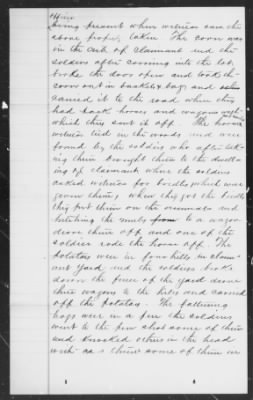 officer
being present when witness saw the
above property taken The corn was
in the crib of claimant and the
soldiers after coming into the lot
broke the door open and took the
corn out in baskets & bags and
carried it to the road when they
had back horses and wagons upon
which they sent it off. The
witness tied in the woods and were
found by the soldiers who after tak-
ing them brought them to the dwell-
ing of claimant where the soldiers
asked witness for bridles which was
given them, when they got the bridles
they put them on the animals and
hitching the mules to a wagon
drove them off and one of the
soldiers rode the horse off. The
potatoes were in four hills in claim-
ant yard and the soldiers broke
down the fence of the yard drove
their wagons to the hills and carried
off the potatoes. The fattening
hogs were in a pen the soldiers
went to the pen shot some of them
and knocked others in the head
with axes threw some of them in